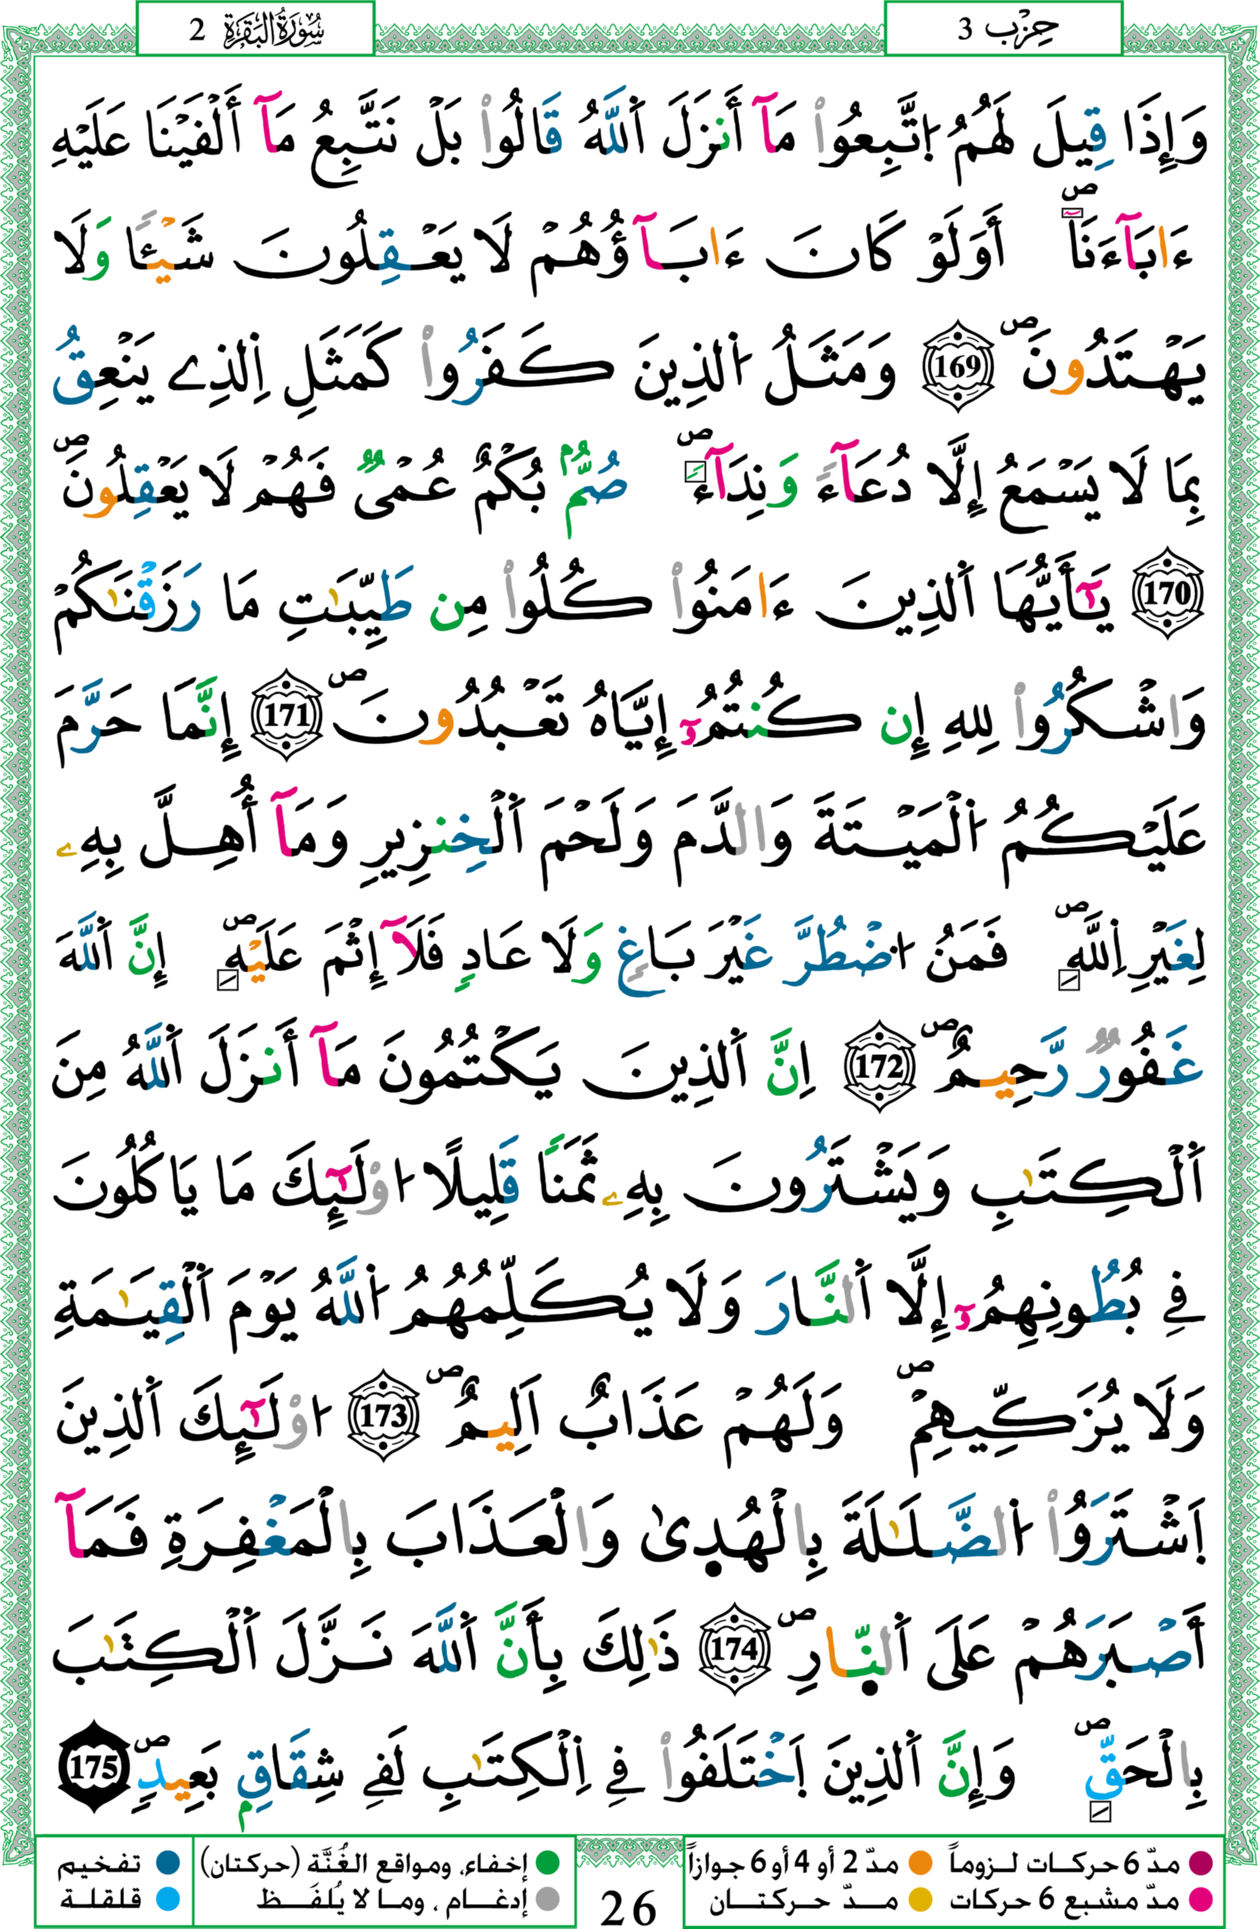 حِزْب 3
سُورَةُ الْبَقَرَةِ 2
وَإِذَا قِيلَ لَهُمُ اُ۪تَّبِعُواْ مَآ أَنزَلَ اَ۬للَّهُ قَالُواْ بَلْ نَتَّبِعُ مَآ أَلْفَيْنَا عَلَيْهِ
ءَابَآءَنَآ ص أَوَلَوْ كَانَ ءَابَآؤُهُمْ لَا يَعْقِلُونَ شَيْـٔاً وَلَا
يَهْتَدُونَ ص 169 وَمَثَلُ اُ۬لذِينَ كَفَرُواْ كَمَثَلِ اِ۬لذِے يَنْعِقُ
بِمَا لَا يَسْمَعُ إِلَّا دُعَآءً وَنِدَآءً ص صُمُّۢ بُكْمٌ عُمْىٌ فَهُمْ لَا يَعْقِلُونَ ص
170 يَٰٓأَيُّهَا اَ۬لذِينَ ءَامَنُواْ كُلُواْ مِن طَيِّبَٰتِ مَا رَزَقْنَٰكُمْ
وَاشْكُرُواْ لِلهِ إِن كُنتُمُۥٓ إِيَّاهُ تَعْبُدُونَ ص 171 إِنَّمَا حَرَّمَ
عَلَيْكُمُ اُ۬لْمَيْتَةَ وَالدَّمَ وَلَحْمَ اَ۬لْخِنزِيرِ وَمَآ أُهِلَّ بِهِۦ
لِغَيْرِ اِ۬للَّهِ ص فَمَنُ اُ۟ضْطُرَّ غَيْرَ بَاغٍ وَلَا عَادٍ فَلَآ إِثْمَ عَلَيْهِ ص إِنَّ اَ۬للَّهَ
غَفُورٌ رَّحِيمٌ ص 172 اِنَّ اَ۬لذِينَ يَكْتُمُونَ مَآ أَنزَلَ اَ۬للَّهُ مِنَ
اَ۬لْكِتَٰبِ وَيَشْتَرُونَ بِهِۦ ثَمَناً قَلِيلًا ا۟وْلَٰٓئِكَ مَا يَاكُلُونَ
فِے بُطُونِهِمُۥٓ إِلَّا اَ۬لنَّارَ وَلَا يُكَلِّمُهُمُ اُ۬للَّهُ يَوْمَ اَ۬لْقِيَٰمَةِ
وَلَا يُزَكِّيهِمْ ص وَلَهُمْ عَذَابٌ اَلِيمٌ ص 173 ا۟وْلَٰٓئِكَ اَ۬لذِينَ
اَ۪شْتَرَوُاْ اُ۬لضَّلَٰلَةَ بِالْهُدٜىٰ وَالْعَذَابَ بِالْمَغْفِرَةِ فَمَآ
أَصْبَرَهُمْ عَلَى اَ۬لنّ۪ارِ ص 174 ذَٰلِكَ بِأَنَّ اَ۬للَّهَ نَزَّلَ اَ۬لْكِتَٰبَ
بِالْحَقِّ ص وَإِنَّ اَ۬لذِينَ اَ۪خْتَلَفُواْ فِے اِ۬لْكِتَٰبِ لَفِے شِقَاقِۭ بَعِيدٍ ص 175
مدّ 6 حركات لـزوماً مدّ 2 أو 4 أو 6 جوازاً إخفاء، ومواقع الغُنَّة (حركتان) تفخيم
مدّ مشبع 6 حركات مـدّ حركتـان إدغـام ، ومـا لا يُلفَـظ قلقلة
26